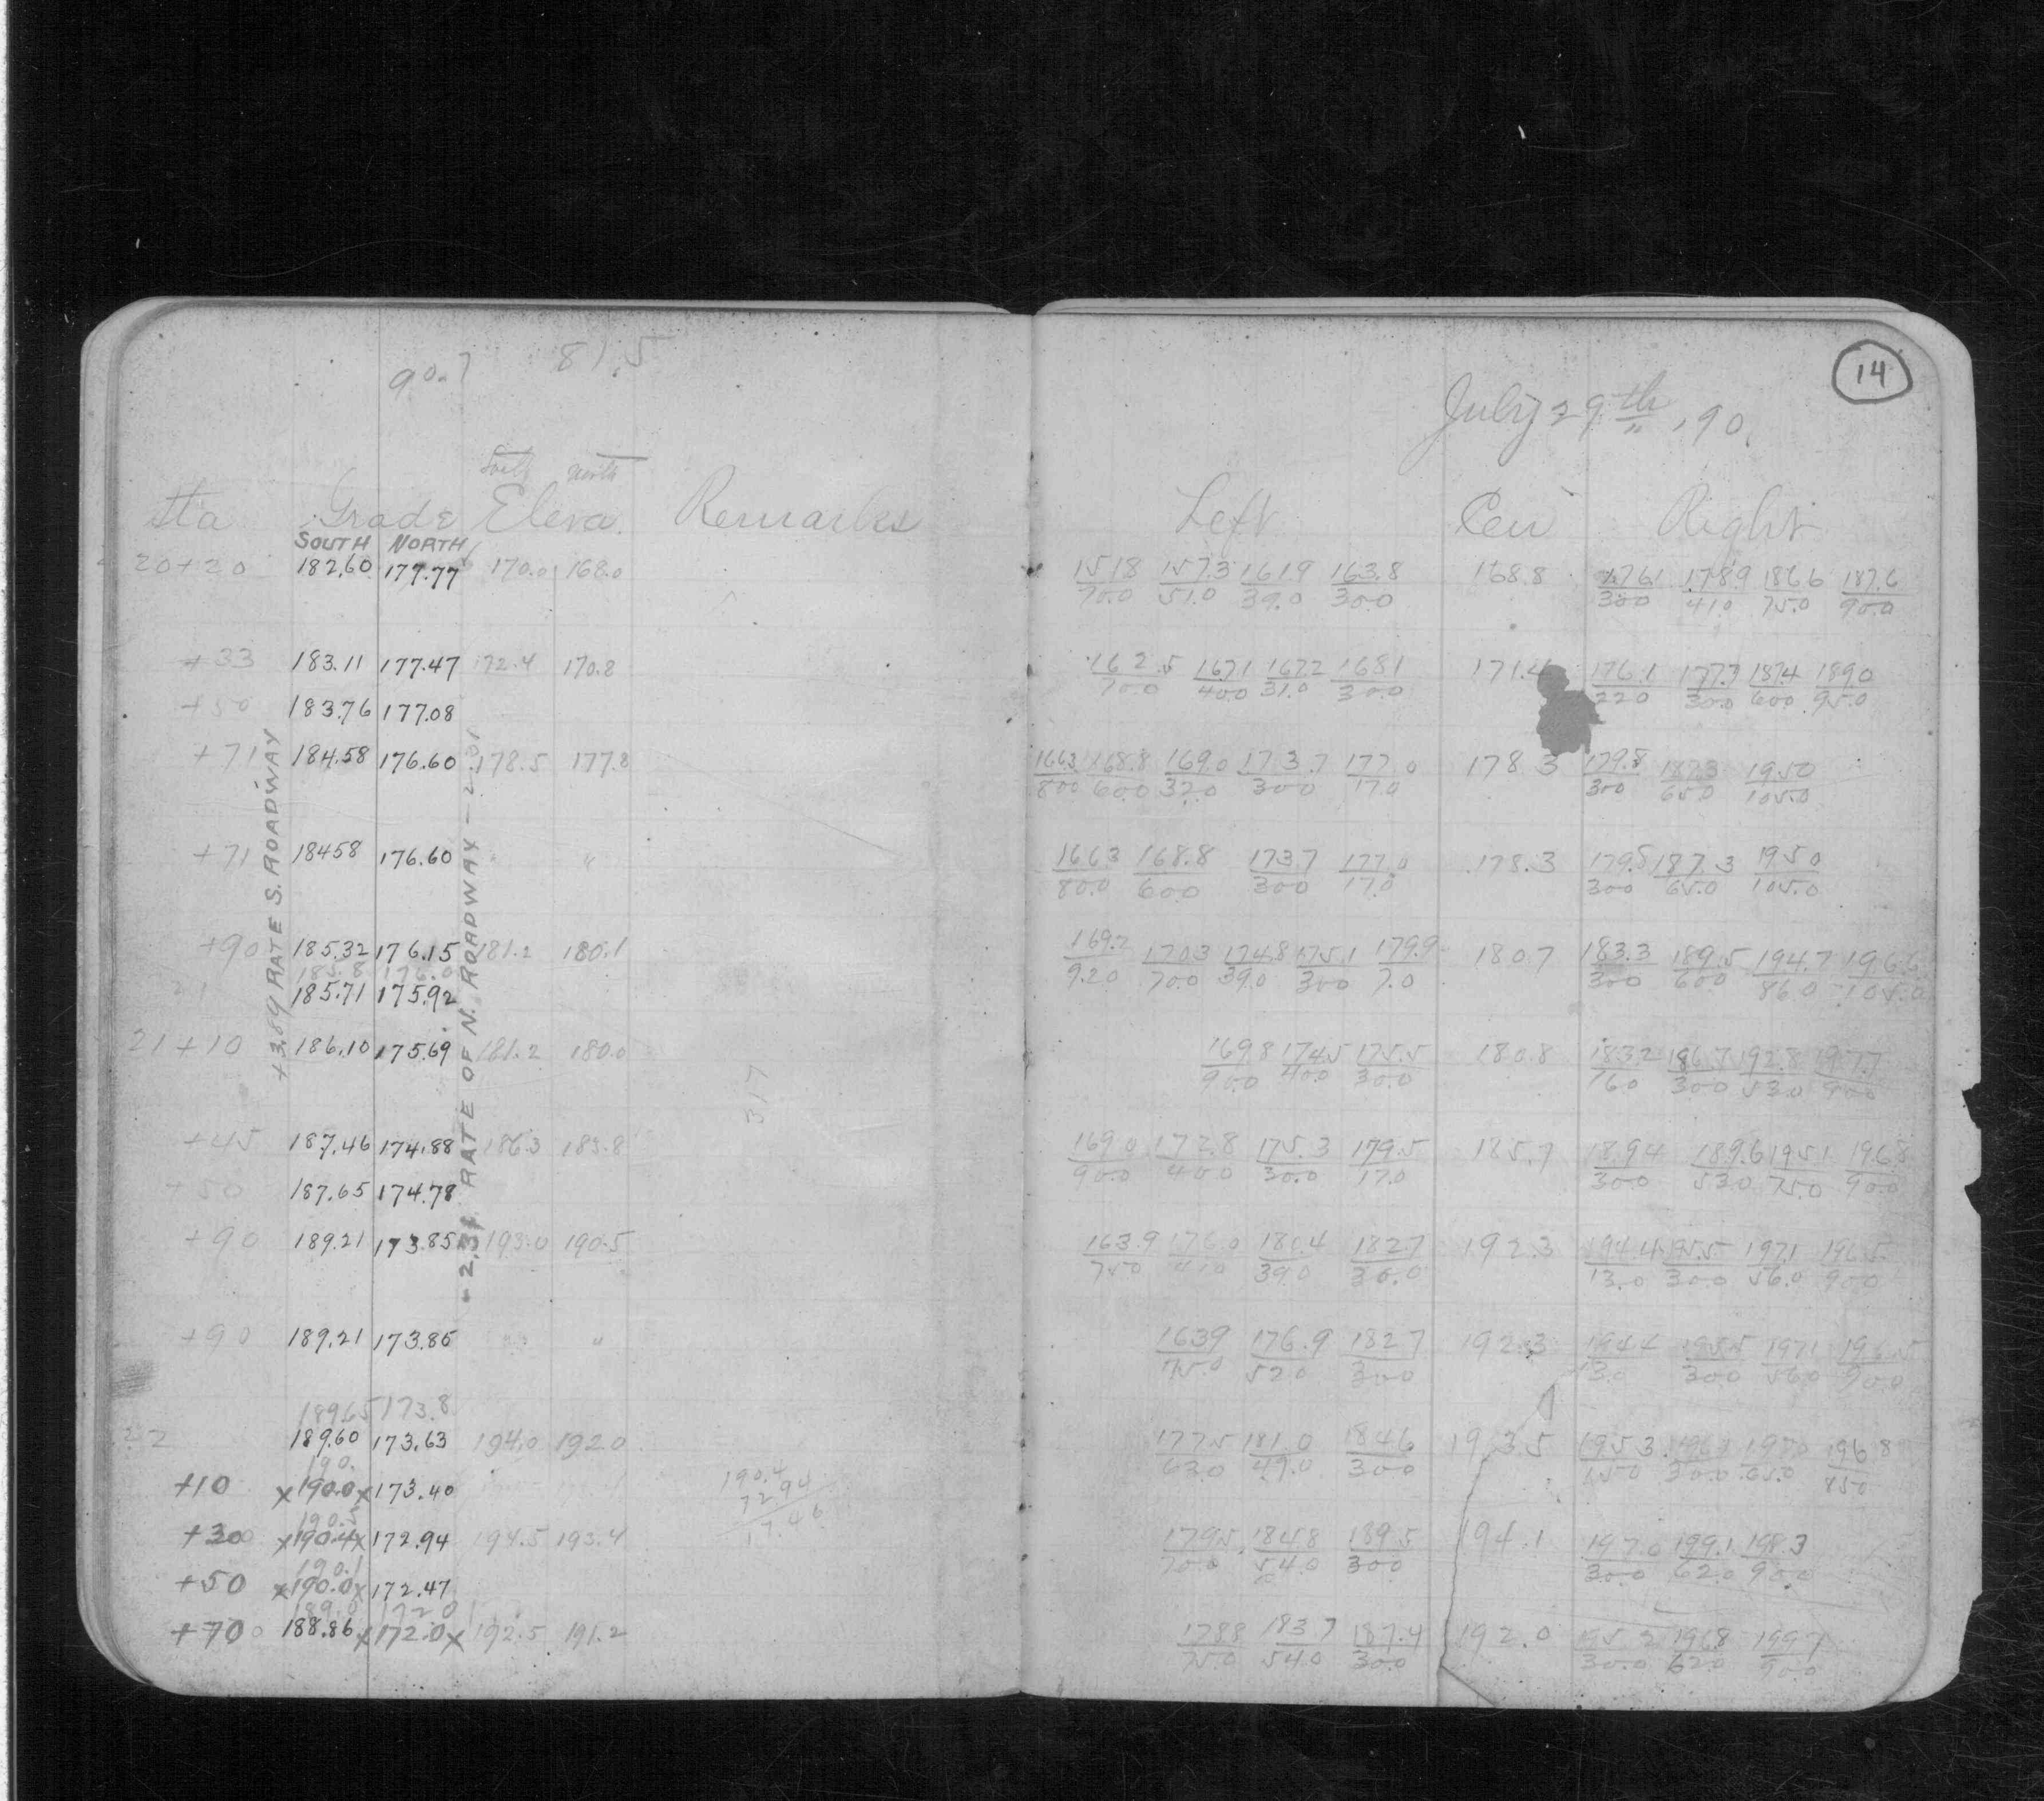 90.7 81.5
South North
Sta Grade Eleva. Remarks
SOUTH NORTH
20+20 182.60 177.77 170.0 168.0
+33 183.11 177.47 172.4 170.8
+50 183.76 177.08
+71 184.58 176.60 178.5 177.8
+71 184.58 176.60 " "
+90 185.32 176.15 181.2 180.1
185.8 176.0
21 185.71 175.92
21+10 186.10 175.69 181.2 180.0
+45 187.46 174.88 186.3 183.8
+50 187.65 174.78
+90 189.21 173.85 193.0 190.5
+90 189.21 173.85 " "
189.65 173.8
22 189.60 173.63 194.0 192.0
190.
+10 x190.0x 173.40
190.5
+30 x190.4x 172.94 194.5 193.4
190.1
+50 x190.0x 172.47
189.0 172.0
+70 188.86 x172.0x 192.5 191.2
+3.89 RATE S. ROADWAY
-2.31 RATE OF N. ROADWAY
317
190.4
72.94
17.46
14
July 29th, 90.
Left Cen Right
151.8 157.3 161.9 163.8 168.8 176.1 178.9 186.6 187.6
90.0 51.0 39.0 30.0 30.0 41.0 75.0 90.0
162.5 167.1 167.2 168.1 171.4 176.1 177.7 187.4 189.0
70.0 40.0 31.0 30.0 22.0 30.0 60.0 95.0
166.3 168.8 169.0 173.7 177.0 178.3 179.8 187.3 195.0
80.0 60.0 32.0 30.0 17.0 30.0 65.0 105.0
166.3 168.8 173.7 177.0 178.3 179.8 187.3 195.0
80.0 60.0 30.0 17.0 30.0 65.0 105.0
169.2 170.3 174.8 175.1 179.9 180.7 183.3 189.5 194.7 196.6
92.0 70.0 39.0 30.0 7.0 30.0 60.0 86.0 105.0
169.8 174.5 175.5 180.8 183.2 186.7 192.8 197.7
90.0 40.0 30.0 16.0 30.0 53.0 90.0
169.0 172.8 175.3 179.5 185.7 189.4 189.6 195.1 196.8
90.0 40.0 30.0 17.0 30.0 53.0 75.0 90.0
163.9 176.0 180.4 182.7 192.3 194.4 195.5 197.1 196.5
75.0 41.0 39.0 30.0 13.0 30.0 56.0 90.0
163.9 176.9 182.7 192.3 194.4 195.5 197.1 196.5
75.0 52.0 30.0 13.0 30.0 56.0 90.0
177.5 181.0 184.6 193.5 195.3 197.0 196.8
63.0 49.0 30.0 15.0 30.0 65.0 85.0
179.5 184.8 189.5 194.1 197.0 199.1 198.3
70.0 54.0 30.0 30.0 62.0 90.0
178.8 183.7 187.4 192.0 195.2 196.8 199.7
75.0 54.0 30.0 30.0 62.0 90.0